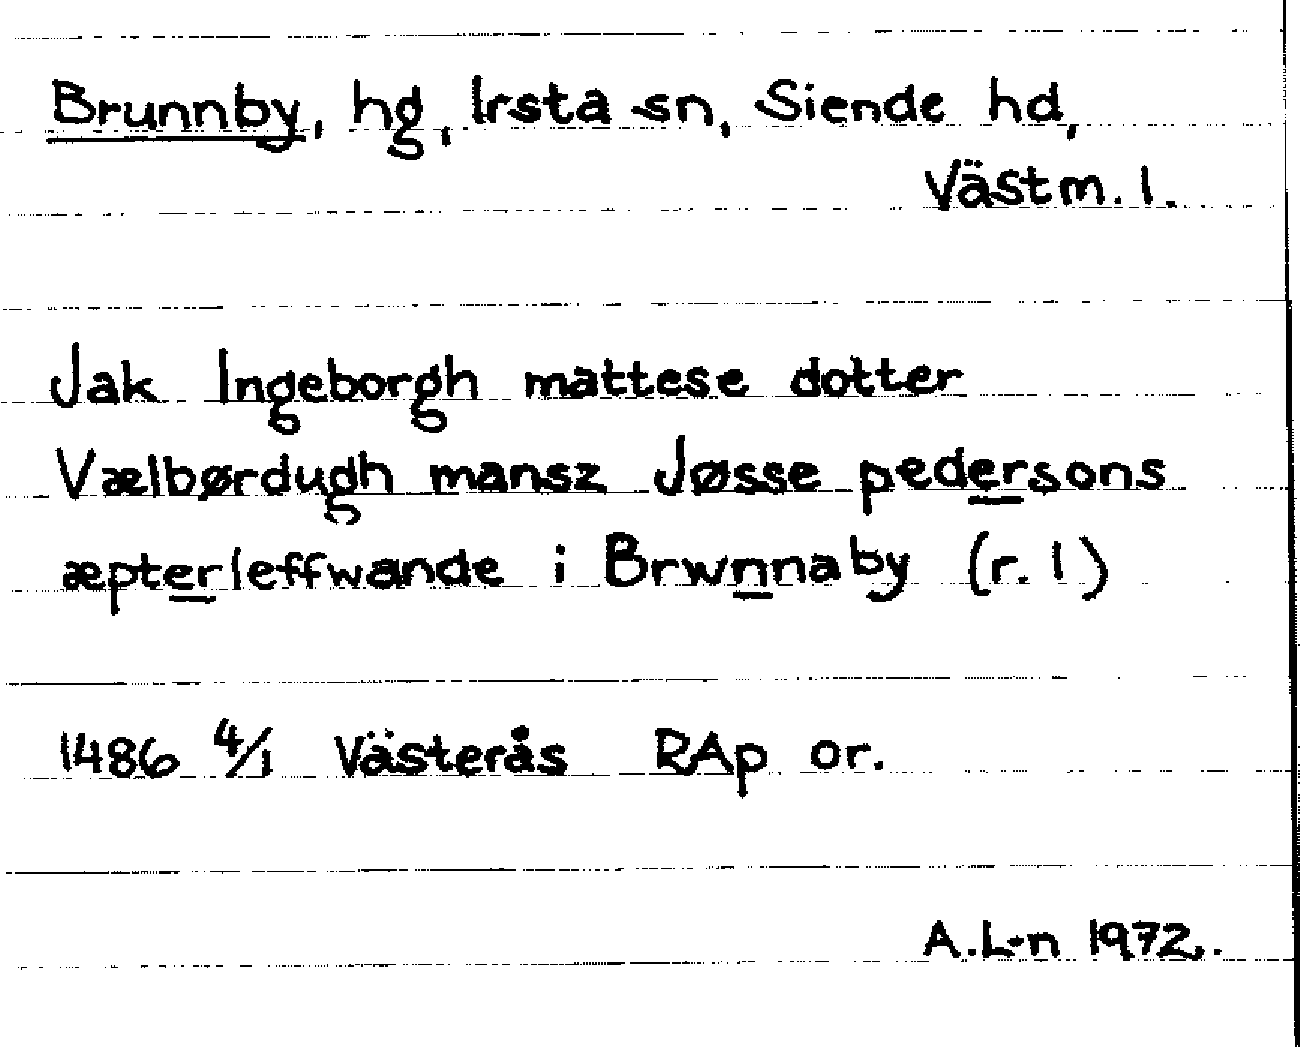 Brunnby, hg, Irsta sn, Siende hd,
Västm. l.
Jak Ingeborgh mattese dotter
Vælbørdugh mansz Jøsse pedersons
æpterleffwande i Brwnnaby (r. 1)
1486 4/1 Västerås RAp or.
A.L-n 1972.